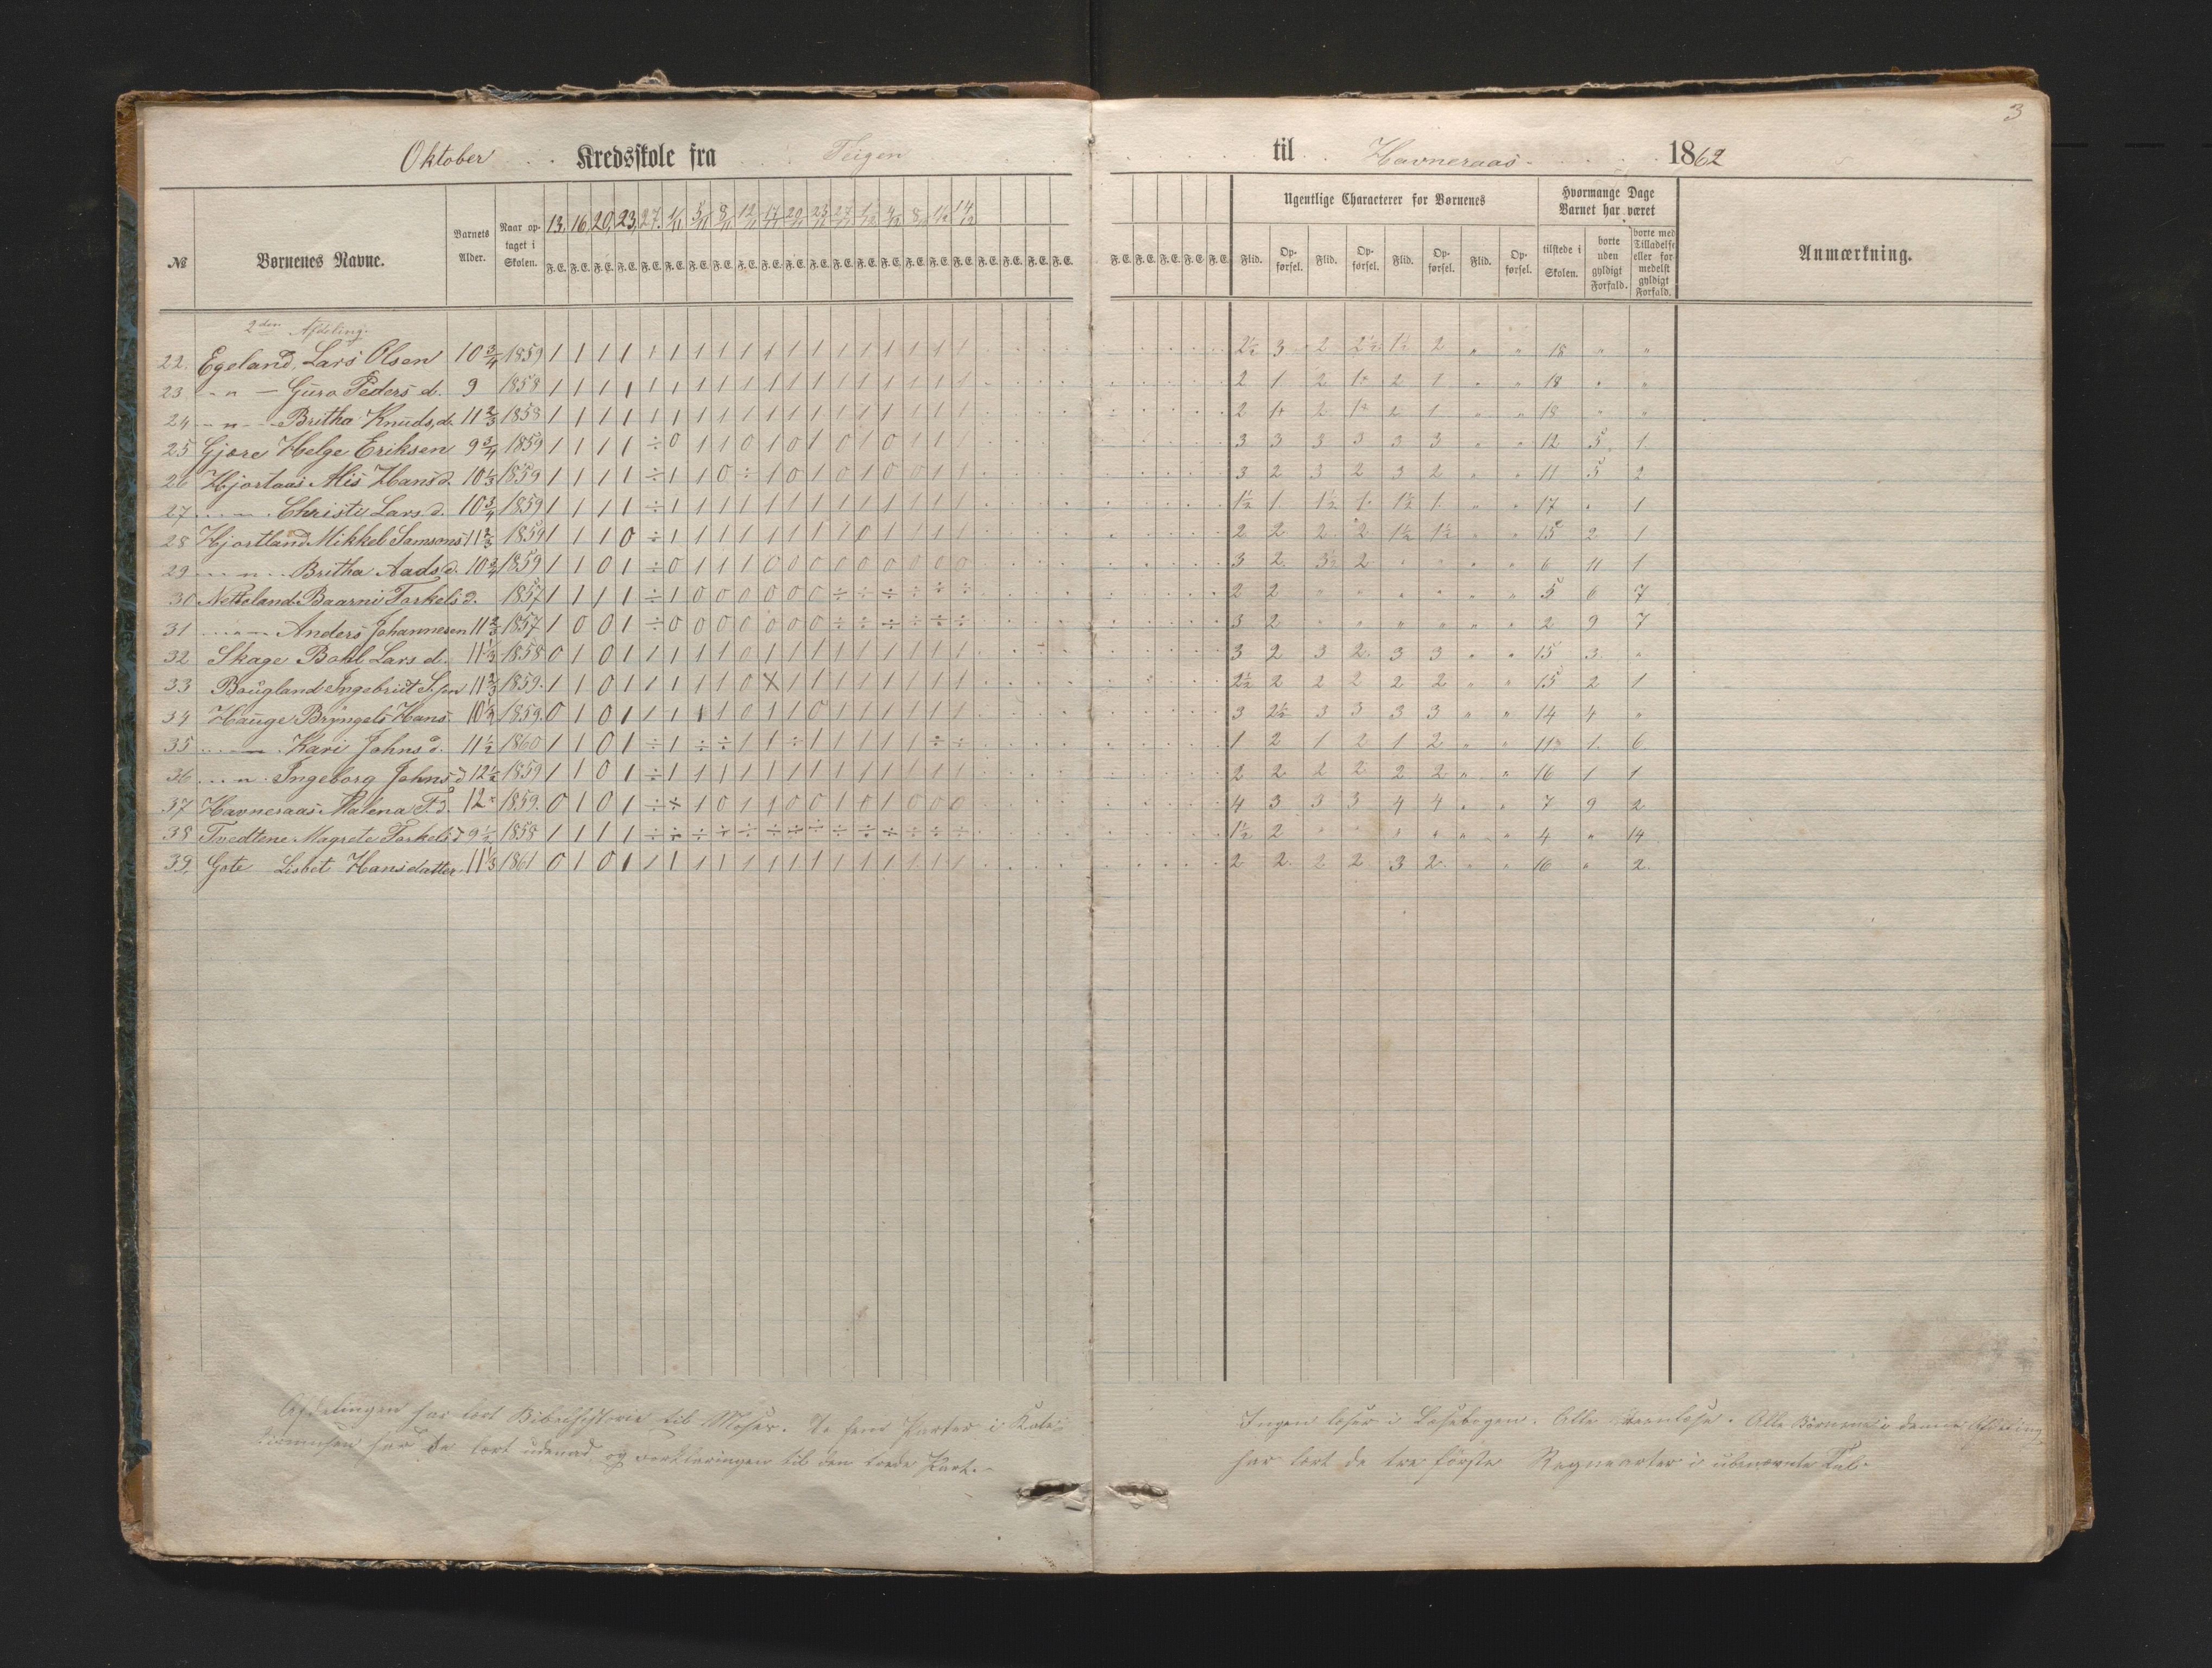 3
Oktober Kredsskole fra Teigen til Havneraas 1862
№ Børnenes Navne. Barnets Alder. Naar optaget i Skolen. 13. 16. 20. 23. 27. 1/11 5/11 8/11 12/11 17/11 20/11 23/11 27/11 1/12 4/12 8/12 11/12 14/12
F.E. F.E. F.E. F.E. F.E. F.E. F.E. F.E. F.E. F.E. F.E. F.E. F.E. F.E. F.E. F.E. F.E. F.E. F.E. F.E. F.E. F.E. F.E. F.E. F.E. F.E. F.E.
Ugentlige Characterer for Børnenes
Flid. Opførsel. Flid. Opførsel. Flid. Opførsel. Flid. Opførsel.
Hvormange Dage Barnet har været
tilstede i Skolen. borte uden gyldigt Forfald. borte med Tilladelse eller formedelst gyldigt Forfald.
Anmærkning.
2den Afdeling.
22. Egeland, Lars Olsen 10 3/4 1859 1 1 1 1 1 1 1 1 1 1 1 1 1 1 1 1 1 1 2½ 3 2 2½ 1½ 2 „ „ 18 „ „
23 „ — Guro Peders d. 9 1858 1 1 1 1 1 1 1 1 1 1 1 1 1 1 1 1 1 1 2 1 2 1+ 2 1 „ „ 18 „ „
24 „ Britha Knuds,d. 11 2/3 1858 1 1 1 1 1 1 1 1 1 1 1 1 1 1 1 1 1 1 2 1+ 2 1+ 2 1 „ „ 18 „ „
25 Gjøre Helge Eriksen 9 3/4 1859 1 1 1 1 ÷ 0 1 1 0 1 0 1 0 1 0 1 1 1 3 3 3 3 3 3 „ „ 12 5 1
26 Hjortaas Mis Hans d. 10 1/3 1859 1 1 1 1 ÷ 1 1 0 ÷ 1 0 1 0 1 0 0 1 1 3 2 3 2 3 2 „ „ 11 5 2
27 „ Christi Lars d. 10 3/4 1859 1 1 1 1 ÷ 1 1 1 1 1 1 1 1 1 1 1 1 1 1½ 1 1½ 1 1½ 1 „ „ 17 „ 1
28 Hjortland Mikkel Samsons 11 2/3 1859 1 1 1 0 ÷ 1 1 1 1 1 1 1 1 0 1 1 1 1 2 2 2 2 1½ 1½ „ „ 15 2 1
29 „ Britha Aads d. 10 3/4 1859 1 1 0 1 ÷ 0 1 1 1 0 0 0 0 0 0 0 0 0 3 2 3½ 2 „ „ „ „ 6 11 1
30 Netteland Baarni Torkels d. 1857 1 1 1 1 ÷ 1 0 0 0 0 0 0 ÷ ÷ ÷ ÷ ÷ ÷ 2 2 „ „ „ „ „ „ 5 6 7
31 „ Anders Johannesen 11 2/3 1857 1 0 0 1 ÷ 0 0 0 0 0 0 0 ÷ ÷ ÷ ÷ ÷ ÷ 3 2 „ „ „ „ „ „ 2 9 7
32 Skage Bohl Lars d. 11 1/3 1858 0 1 0 1 1 1 1 1 0 1 1 1 1 1 1 1 1 1 3 2 3 2 3 3 „ „ 15 3 „
33 Bougland Ingebrit S.sen 11 2/3 1859. 1 1 0 1 1 1 1 1 0 X 1 1 1 1 1 1 1 1 2½ 2 2 2 2 2 „ „ 15 2 1
34 Hauge Bryngels Hans 10 1/2 1859. 0 1 0 1 1 1 1 1 0 1 1 0 1 1 1 1 1 1 3 2½ 3 3 3 3 „ „ 14 4 „
35 „ Kari Johns d. 11 1/2 1860 1 1 0 1 ÷ 1 ÷ ÷ 1 1 ÷ 1 1 1 1 1 ÷ ÷ 1 2 1 2 1 2 „ „ 11 1 6
36 „ Ingeborg Johns d 12 1/2 1859 1 1 0 1 ÷ 1 1 1 1 1 1 1 1 1 1 1 1 1 2 2 2 2 2 2 „ „ 16 1 1
37 Havneraas Malena T.d. 12 1859. 0 1 0 1 ÷ ÷ 1 0 1 1 0 0 1 0 1 0 0 0 4 3 3 3 4 4 „ „ 7 9 2
38 Tvedtene Magrete Torkels d 9 1/2 1858 1 1 1 1 ÷ ÷ ÷ ÷ ÷ ÷ ÷ ÷ ÷ ÷ ÷ ÷ ÷ ÷ 1½ 2 „ „ „ „ „ „ 4 „ 14
39. Gote Lisbet Hansdatter 11 1/3 1861 0 1 0 1 1 1 1 1 1 1 1 1 1 1 1 1 1 1 2 2 2 2 3 2 „ „ 16 „ 2
Afdelingen har lært Bibelhistorie til Moses. De fem Parter i Kate-
kismusen har de lært udenad og Forklaringen til den tredie Part.
Ingen læser i Læsebogen. Alle Børnene i denne Afdeling
har lært de tre første Regnearter i ubenævnte Tal.